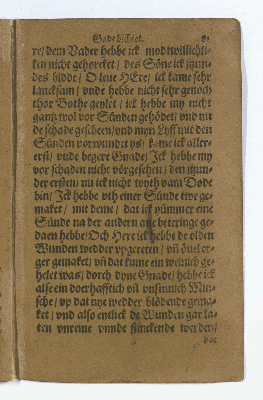 Gades bichtet.
re/ dem Vader hebbe ick modtwillichli-
ken nicht gehorket/ des Söne ick ytzun-
des bidde/ O leue HEre/ ick kame sehr
lancksam/ vnde hebbe nicht sehr genoch
thor Bothe geylet/ ick hebbe my nicht
gantz wol vor Sünden gehödet/ vnd mi
de schade gescheen/ vnd myn Lyff mit den
Sünden vorwundet ys/ kame ick aller-
erst/ vnde begere Gnade/ Ick hebbe my
vor schaden nicht vörgesehen/ den ytzun-
der ersten/ nu ick nicht wyth vam Dode
bin/ Ick hebbe vth einer Sünde twe ge-
maket/ mit deme/ dat ick yümmer eine
Sünde na der andern ane beteringe ge-
daen hebbe/ Och Here ick hebbe de olden
Wunden wedder vpgereten/ vñ öuel er-
ger gemaket/ vñ dat kume ein weinich ge-
helet was/ dorch dyne Gnade/ hebbe ick
alse ein doerhafftich vñ vnsinnich Min-
sche/ vp dat nye wedder blödende gema-
ket/ vnd also entlick de Wunden gar la-
ten vnreine vnnde stinckende werden/
dat